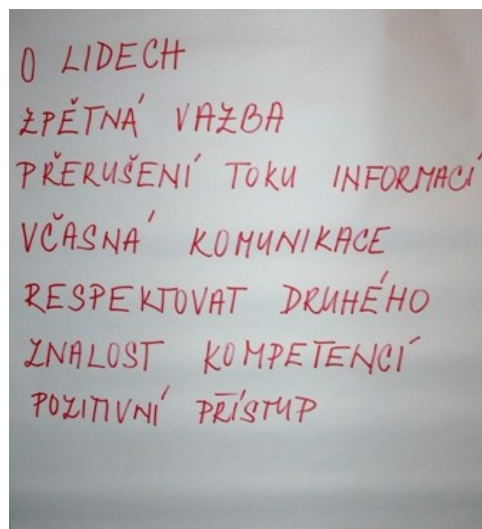 O LIDECH
ZPĚTNÁ VAZBA
PŘERUŠENÍ TOKU INFORMACÍ
VČASNÁ KOMUNIKACE
RESPEKTOVAT DRUHÉHO
ZNALOST KOMPETENCÍ
POZITIVNÍ PŘÍSTUP